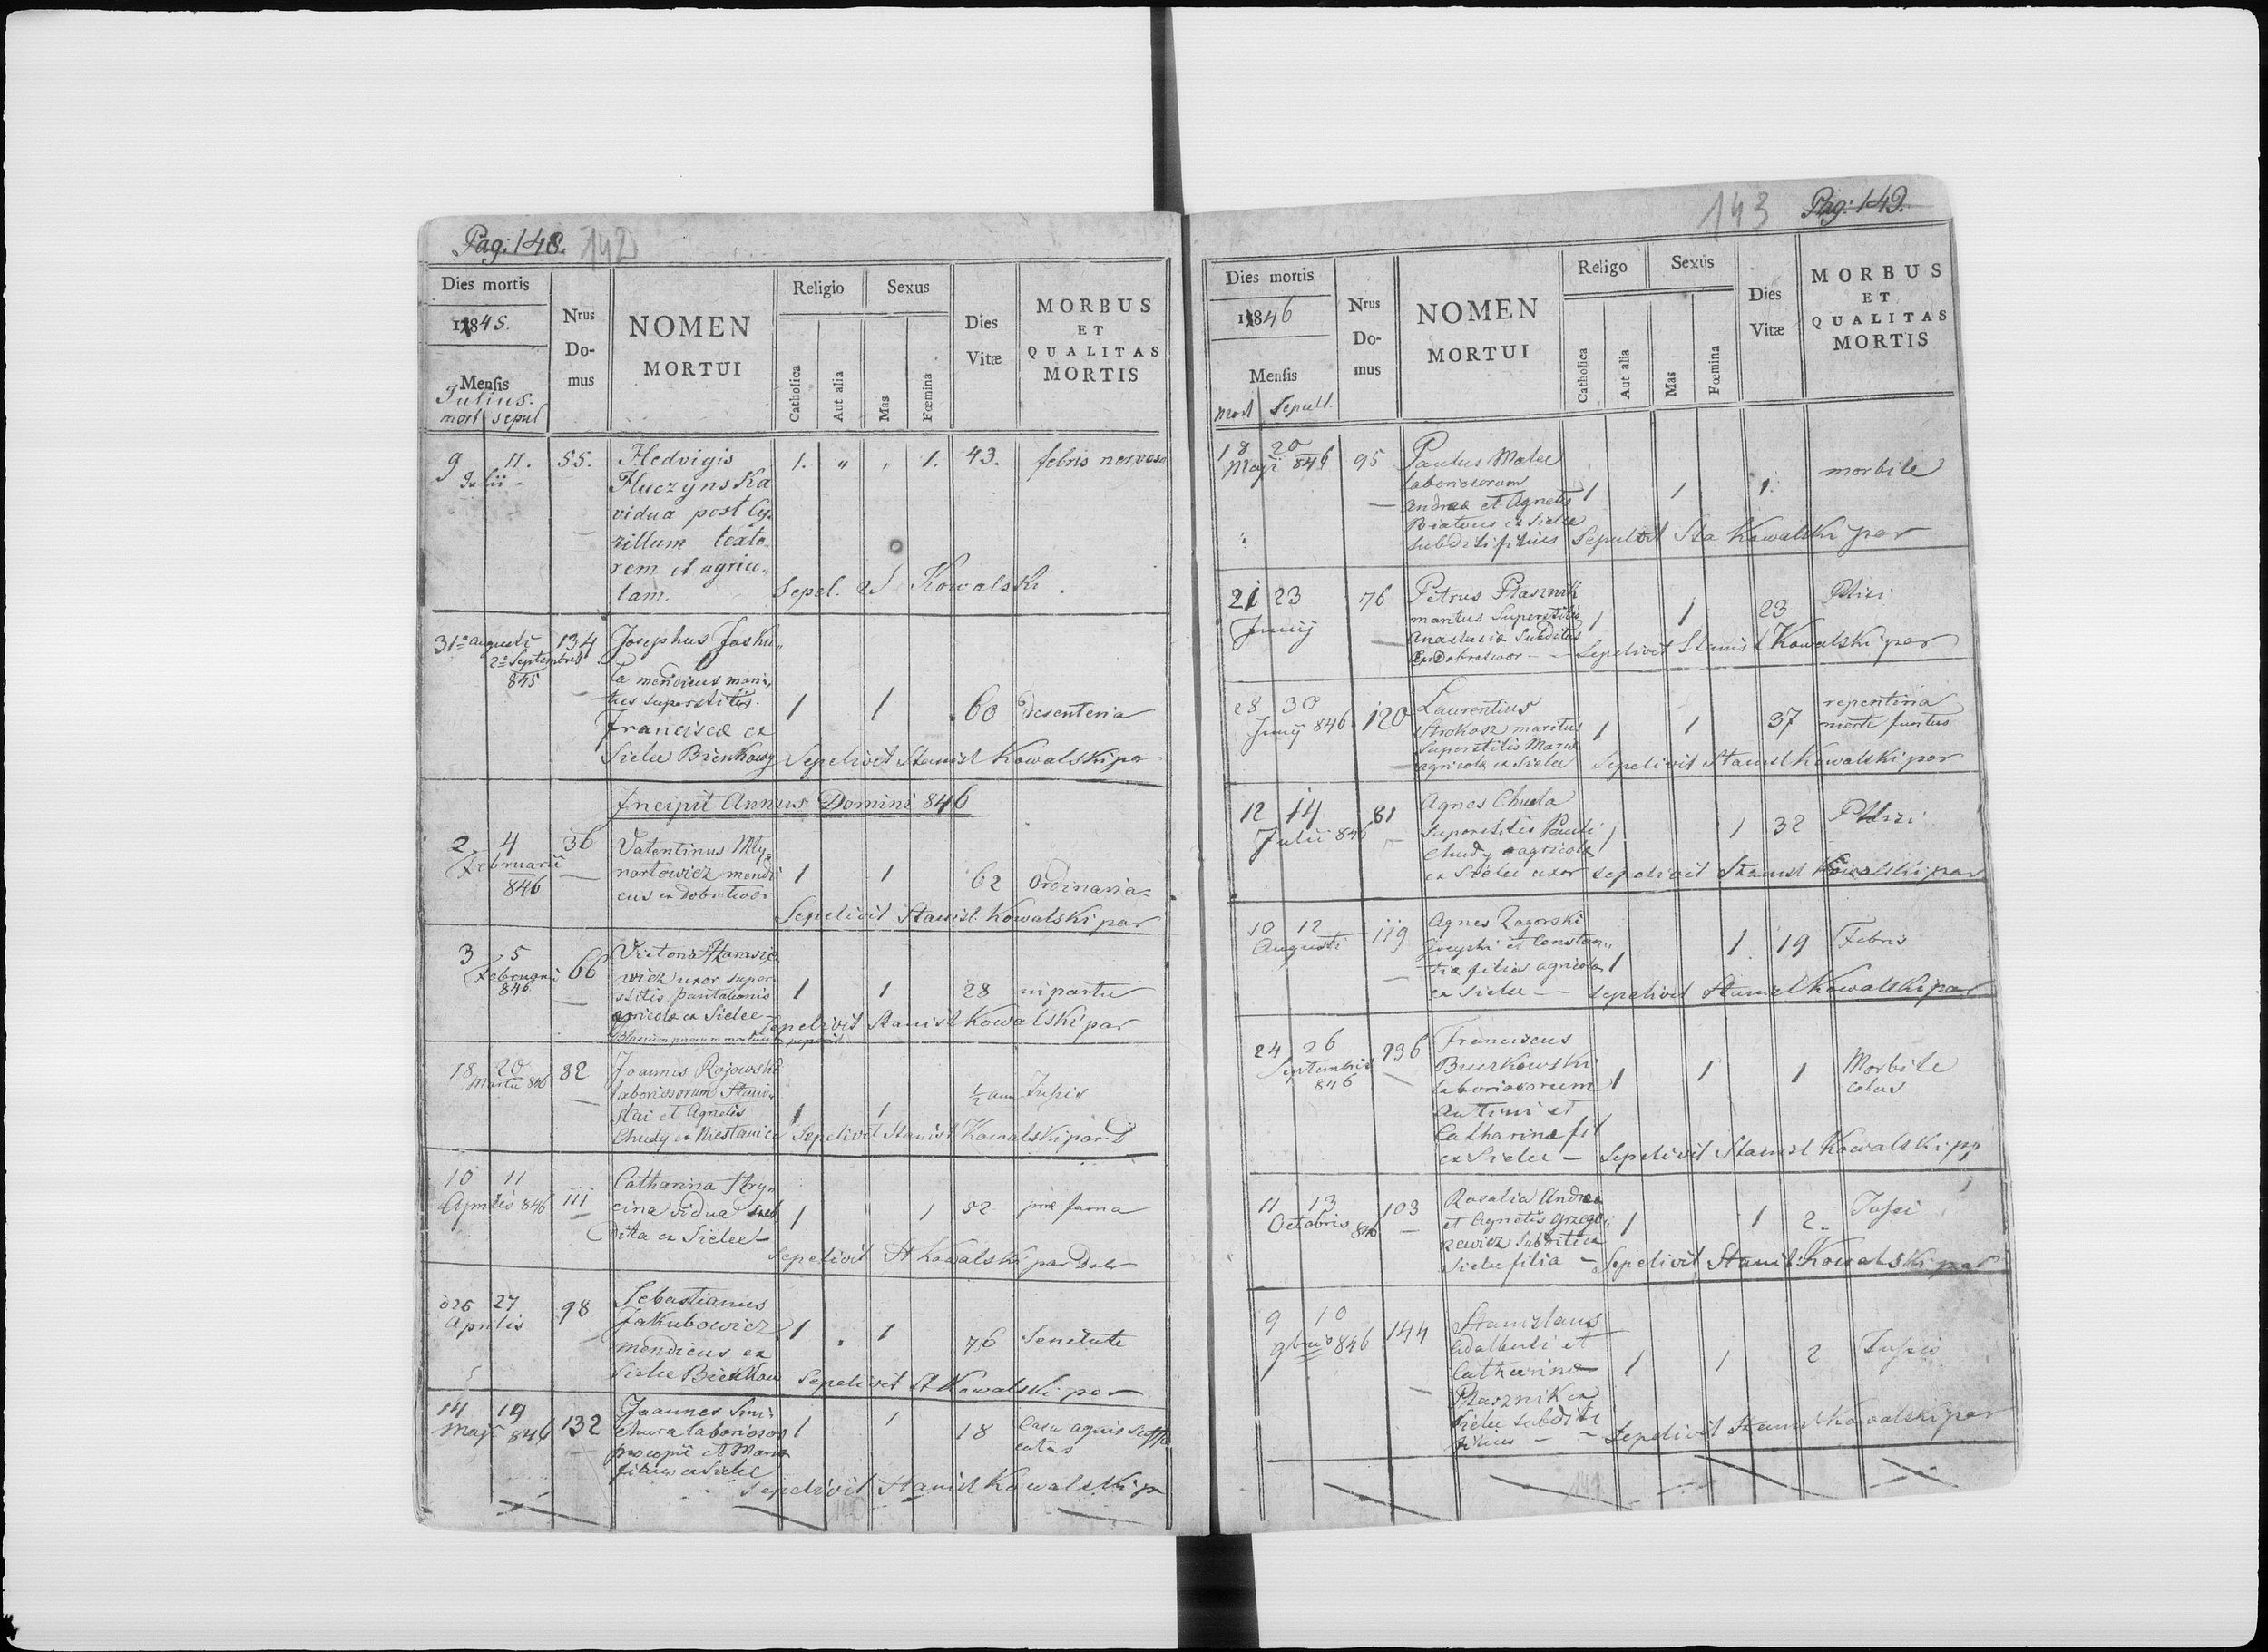 Pag: 148. 142
Dies mortis
1845.
Mensis
Julius.
mort sepul
Nrus
Do-
mus
NOMEN
MORTUI
Religio
Catholica
Aut alia
Sexus
Mas
Fœmina
Dies
Vitæ
MORBUS
ET
QUALITAS
MORTIS
9 11. 55. Hedvigis 1. " , 1. 43. febris nervosa
Julii
Huczynska
vidua post Cy,
rillum texto
rem et agrico,,
lam. Sepel. S Kowalski.
31a augusti 134 Josephus Jasku,,
2a Septembris
845
la mendicus mari,
tus superstitis. 1 1 60 desenteria
Franciscæ ex
Sielec Bienkowy Sepelivit Stanisl Kowalski par
Incipit Annus Domini 846
2 4 36 Valentinus Mły,
Februarii
846
nartowicz mendi 1 1 62 Ordinaria
cus ex Dobrotwor
Sepelivit Stanisl. Kowalski par
3 5 66 Victoria Harasie
Februarii
846
wicz uxor super 1 1 28 in partu
stitis pantalionis
agricolæ ex Sielec
Sepelivit Stanisl Kowalski par
18 20 82 Joannes Rojowski
Martii 846
laboriosorum Stani, ½ ann Tussis
slai et Agnetis 1 1
Chudy ex Niestanice Sepelivit Stanisl Kowalski par D
10 11 111 Catharina Hry,,
Aprilis 846
cina vidua sub 1 1 52 præ fama
dita ex Sielec
Sepelivit St Kowalski par Dobr
26 27 98 Sebastianus
Aprilis
Jakubowicz 1 1 76 Senetute
mendicus ex
Sielec Bienkow Sepelivit St Kowalski par
14 19 132 Joannes Smi 1 1 18 Casu aquis suffo
Maji 846
chura laborioson catus
procopii et Maria
filius ex Sielec
Sepelivit Stanisl Kowalski p
143 Pag: 149.
Dies mortis
1846
Mensis
Mort Sepult.
Nrus
Do-
mus
NOMEN
MORTUI
Religo
Catholica
Aut alia
Sexus
Mas
Fœmina
Dies
Vitæ
MORBUS
ET
QUALITAS
MORTIS
18 20 95 Paulus Malec morbile
Maji 846
laboriosorum 1 1 1.
Andreæ et Agnetis
ex Sielec
subditi filius Sepelivit Sta Kowalski par
21 23 76 Petrus Ptasznik Ptizi
Junij
maritus Superstitis 1 1 23
Anastasiæ Subditus
ex Dobrotwor - - Sepelivit Stanisl Kowalski par
28 30 120 Laurentius repentina
Junij 846
Strokosz maritus 1 1 37 morte funtus
Superstitis Mariæ
agricola ex Sielec Sepelivit Stanisl Kowalski par
12 14 81 Agnes Chuda
Julii 846
Superstitis Pauli 1 1 32 Ptizi
Chudy agricola
ex Sielec uxor sepelivit Stanisl Kowalski par
10 12 119 Agnes Zagorski
Augusti
et Constan,, 1 19 Febris
tiæ filia agricola 1
ex Sielec - - sepelivit Stanisl Kowalski par
24 26 136 Franciscus
Septembris
846
Bieńkowski 1 1 Morbile
laboriosorum 1
Antoni et
Catharinæ fil
ex Sielec - Sepelivit Stanisl Kowalski pp
11 13 103 Rosalia Andreæ
Octobris 846
et Agnetis Grzego, 1 1 2. Tussi
rewicz Subditi ex
Sielec filia - Sepelivit Stanisl Kowalski par
9 10 144 Stanislaus
9bris 846
Adalberti et
Catharinæ 1 1 2 Tussis
Ptasznik ex
Sielec subditi
filius - - Sepelivit Stanisl Kowalski par